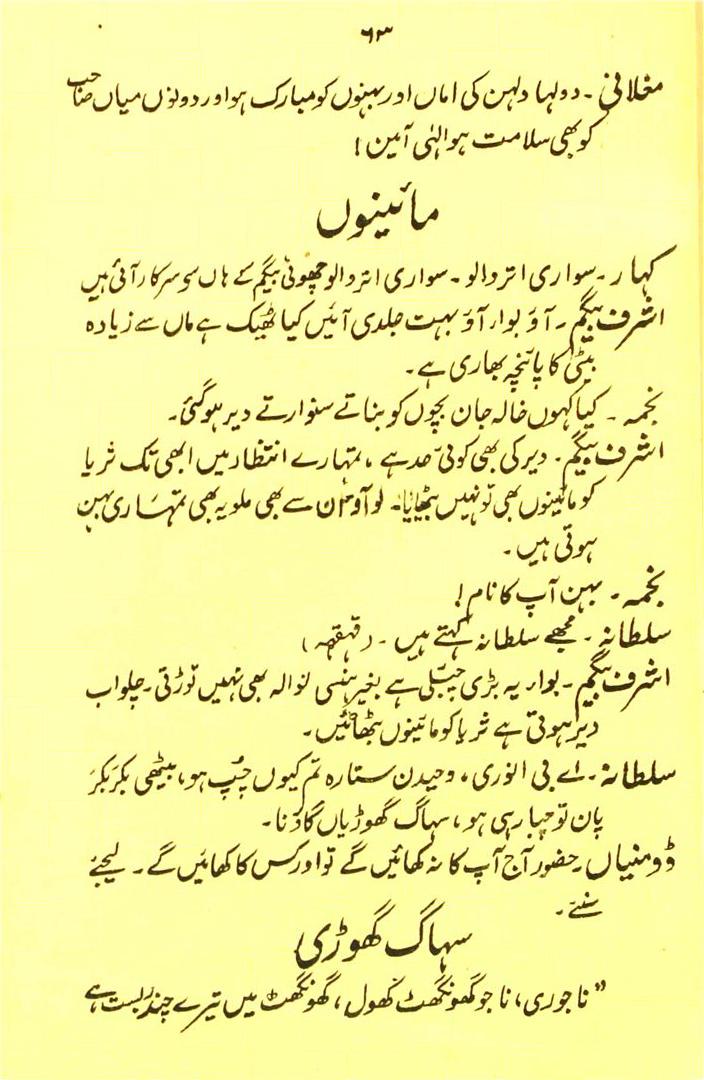 ۶۳
مغلانی ۔ دولہا دلہن کی اماں اور بہنوں کو مبارک ہو اور دونوں میاں صاحب
کو بھی سلامت ہو الٰہی آمین !
مائینوں
کہار ۔ سواری اتروالو ۔ سواری اتروالو چھوٹی بیگم کے ہاں سے سرکار آئی ہیں
اشرف بیگم ۔ آؤ بوار آؤ بہت جلدی آئیں کیا ٹھیک ہے ماں سے زیادہ
بیٹی کا پائنچہ بھاری ہے ۔
نجمہ ۔ کیا کہوں خالہ جان بچوں کو بناتے سنوارتے دیر ہو گئی ۔
اشرف بیگم ۔ دیر کی بھی کوئی حد ہے ، تمہارے انتظار میں ابھی تک ثریا
کو مائینوں بھی تو نہیں بٹھایا ۔ لو آؤ ان سے بھی ملو یہ بھی تمہاری بہن
ہوتی ہیں ۔
نجمہ ۔ بہن آپ کا نام !
سلطانہ ۔ مجھے سلطانہ کہتے ہیں ۔ (قہقہہ)
اشرف بیگم ۔ بوار یہ بڑی چبلی ہے بغیر ہنسی نوالہ بھی نہیں توڑتی ۔ چلو اب
دیر ہوتی ہے ثریا کو مائینوں بٹھائیں ۔
سلطانہ ۔ اے بی انوری ، وحیدن ستارہ تم کیوں چپ ہو ، بیٹھی بکر بکر
پان تو چبا رہی ہو ، سہاگ گھوڑیاں گاؤ نا ۔
ڈومنیاں ۔ حضور آج آپ کا نہ کھائیں گے تو اور کس کا کھائیں گے ۔ لیجئے
سنئے ۔
سہاگ گھوڑی
” ناجوری ، ناجو گھونگھٹ کھول ، گھونگھٹ میں تیرے چند ر بست ہے